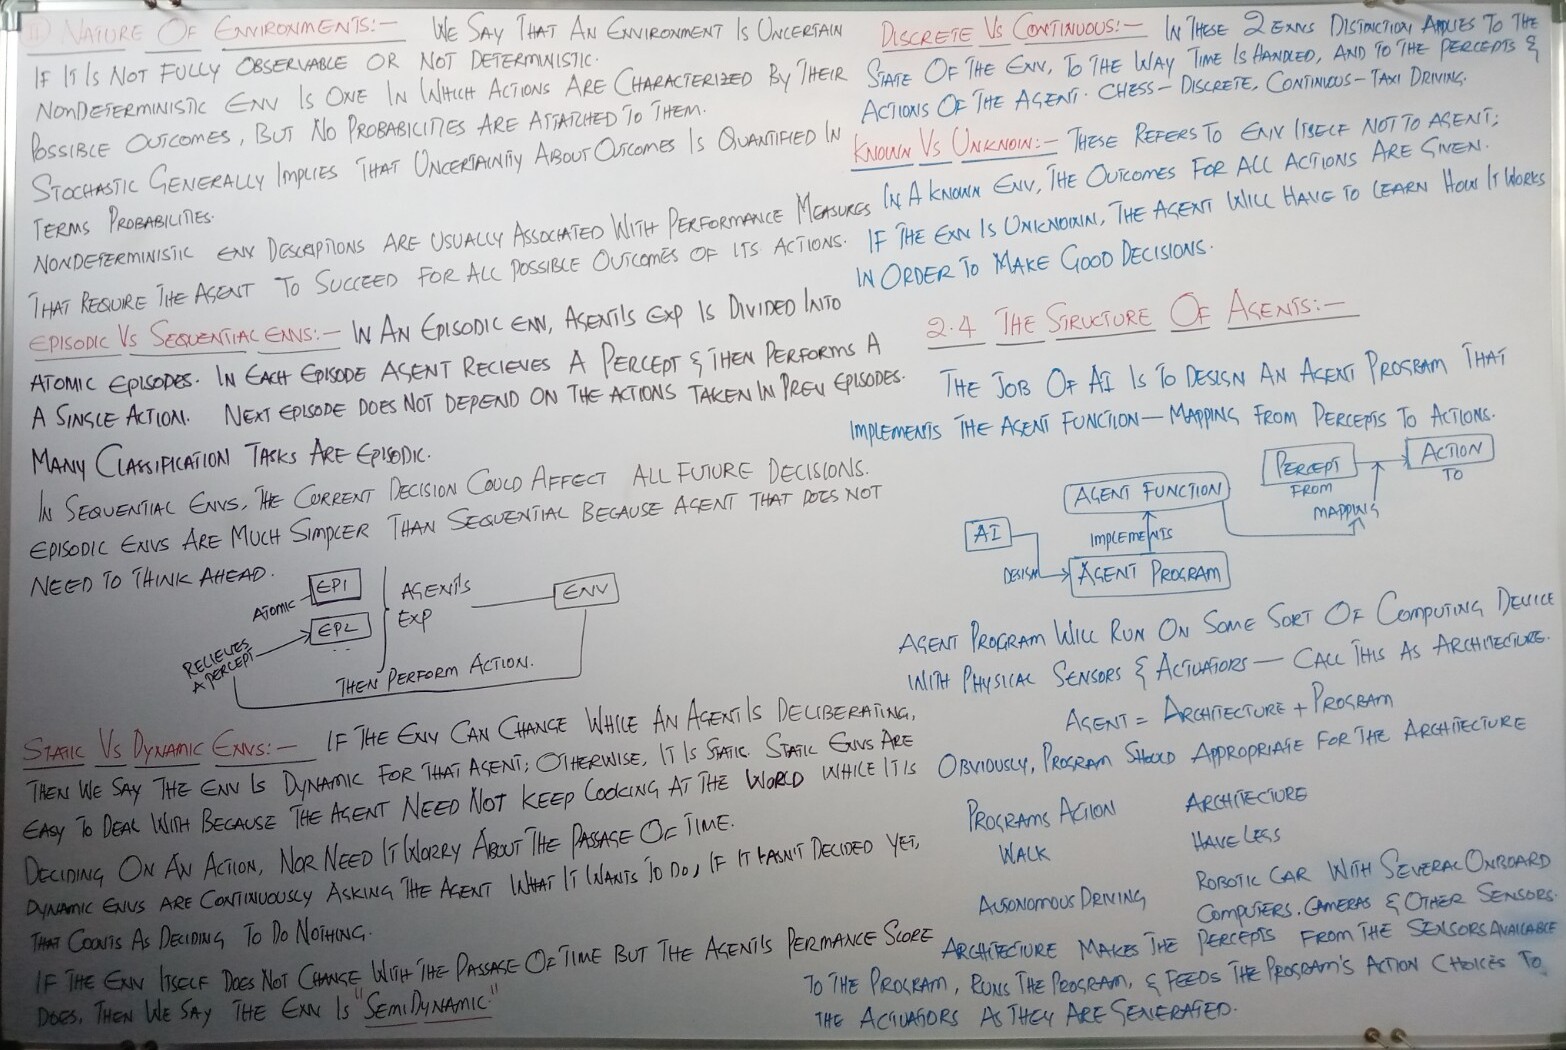 11) NATURE OF ENVIRONMENTS:- WE SAY THAT AN ENVIRONMENT IS UNCERTAIN
IF IT IS NOT FULLY OBSERVABLE OR NOT DETERMINISTIC.
NONDETERMINISTIC ENV IS ONE IN WHICH ACTIONS ARE CHARACTERIZED BY THEIR
POSSIBLE OUTCOMES, BUT NO PROBABILITIES ARE ATTATCHED TO THEM.
STOCHASTIC GENERALLY IMPLIES THAT UNCERTAINITY ABOUT OUTCOMES IS QUANTIFIED IN
TERMS PROBABILITIES.
NONDETERMINISTIC ENV DESCRIPTIONS ARE USUALLY ASSOCIATED WITH PERFORMANCE MEASURES
THAT REQUIRE THE AGENT TO SUCCEED FOR ALL POSSIBLE OUTCOMES OF ITS ACTIONS.
EPISODIC VS SEQUENTIAL ENVS:- IN AN EPISODIC ENV, AGENT'S EXP IS DIVIDED INTO
ATOMIC EPISODES. IN EACH EPISODE AGENT RECIEVES A PERCEPT & THEN PERFORMS A
A SINGLE ACTION. NEXT EPISODE DOES NOT DEPEND ON THE ACTIONS TAKEN IN PREV EPISODES.
MANY CLASSIFICATION TASKS ARE EPISODIC.
IN SEQUENTIAL ENVS, THE CURRENT DECISION COULD AFFECT ALL FUTURE DECISIONS.
EPISODIC ENVS ARE MUCH SIMPLER THAN SEQUENTIAL BECAUSE AGENT THAT DOES NOT
NEED TO THINK AHEAD.
ATOMIC
EP1
EP2
AGENT'S
EXP
ENV
RECIEVES
A PERCEPT
THEN PERFORM ACTION.
STATIC VS DYNAMIC ENVS:- IF THE ENV CAN CHANGE WHILE AN AGENT IS DELIBERATING,
THEN WE SAY THE ENV IS DYNAMIC FOR THAT AGENT; OTHERWISE, IT IS STATIC. STATIC ENVS ARE
EASY TO DEAL WITH BECAUSE THE AGENT NEED NOT KEEP LOOKING AT THE WORLD WHILE IT IS
DECIDING ON AN ACTION, NOR NEED IT WORRY ABOUT THE PASSAGE OF TIME.
DYNAMIC ENVS ARE CONTINUOUSLY ASKING THE AGENT WHAT IT WANTS TO DO, IF IT HASN'T DECIDED YET,
THAT COUNTS AS DECIDING TO DO NOTHING.
IF THE ENV ITSELF DOES NOT CHANGE WITH THE PASSAGE OF TIME BUT THE AGENT'S PERMANCE SCORE
DOES, THEN WE SAY THE ENV IS "SEMIDYNAMIC"
DISCRETE VS CONTINUOUS:- IN THESE 2 ENVS DISTINCTION APPLIES TO THE
STATE OF THE ENV, TO THE WAY TIME IS HANDLED, AND TO THE PERCEPTS &
ACTIONS OF THE AGENT. CHESS - DISCRETE, CONTINUOUS - TAXI DRIVING.
KNOWN VS UNKNOWN:- THESE REFERS TO ENV ITSELF NOT TO AGENT;
IN A KNOWN ENV, THE OUTCOMES FOR ALL ACTIONS ARE GIVEN.
IF THE ENV IS UNKNOWN, THE AGENT WILL HAVE TO LEARN HOW IT WORKS
IN ORDER TO MAKE GOOD DECISIONS.
2.4 THE STRUCTURE OF AGENTS:-
THE JOB OF AI IS TO DESIGN AN AGENT PROGRAM THAT
IMPLEMENTS THE AGENT FUNCTION - MAPPING FROM PERCEPTS TO ACTIONS.
PERCEPT
ACTION
FROM
TO
AGENT FUNCTION
MAPPING
AI
IMPLEMENTS
DESIGN
AGENT PROGRAM
AGENT PROGRAM WILL RUN ON SOME SORT OF COMPUTING DEVICE
WITH PHYSICAL SENSORS & ACTUATORS - CALL THIS AS ARCHITECTURE.
AGENT = ARCHITECTURE + PROGRAM
OBVIOUSLY, PROGRAM SHOULD APPROPRIATE FOR THE ARCHITECTURE
PROGRAMS ACTION ARCHITECTURE
WALK HAVE LEGS
AUTONOMOUS DRIVING ROBOTIC CAR WITH SEVERAL ONBOARD
COMPUTERS. CAMERAS & OTHER SENSORS.
ARCHITECTURE MAKES THE PERCEPTS FROM THE SENSORS AVAILABLE
TO THE PROGRAM, RUNS THE PROGRAM, & FEEDS THE PROGRAM'S ACTION CHOICES TO
THE ACTUATORS AS THEY ARE GENERATED.